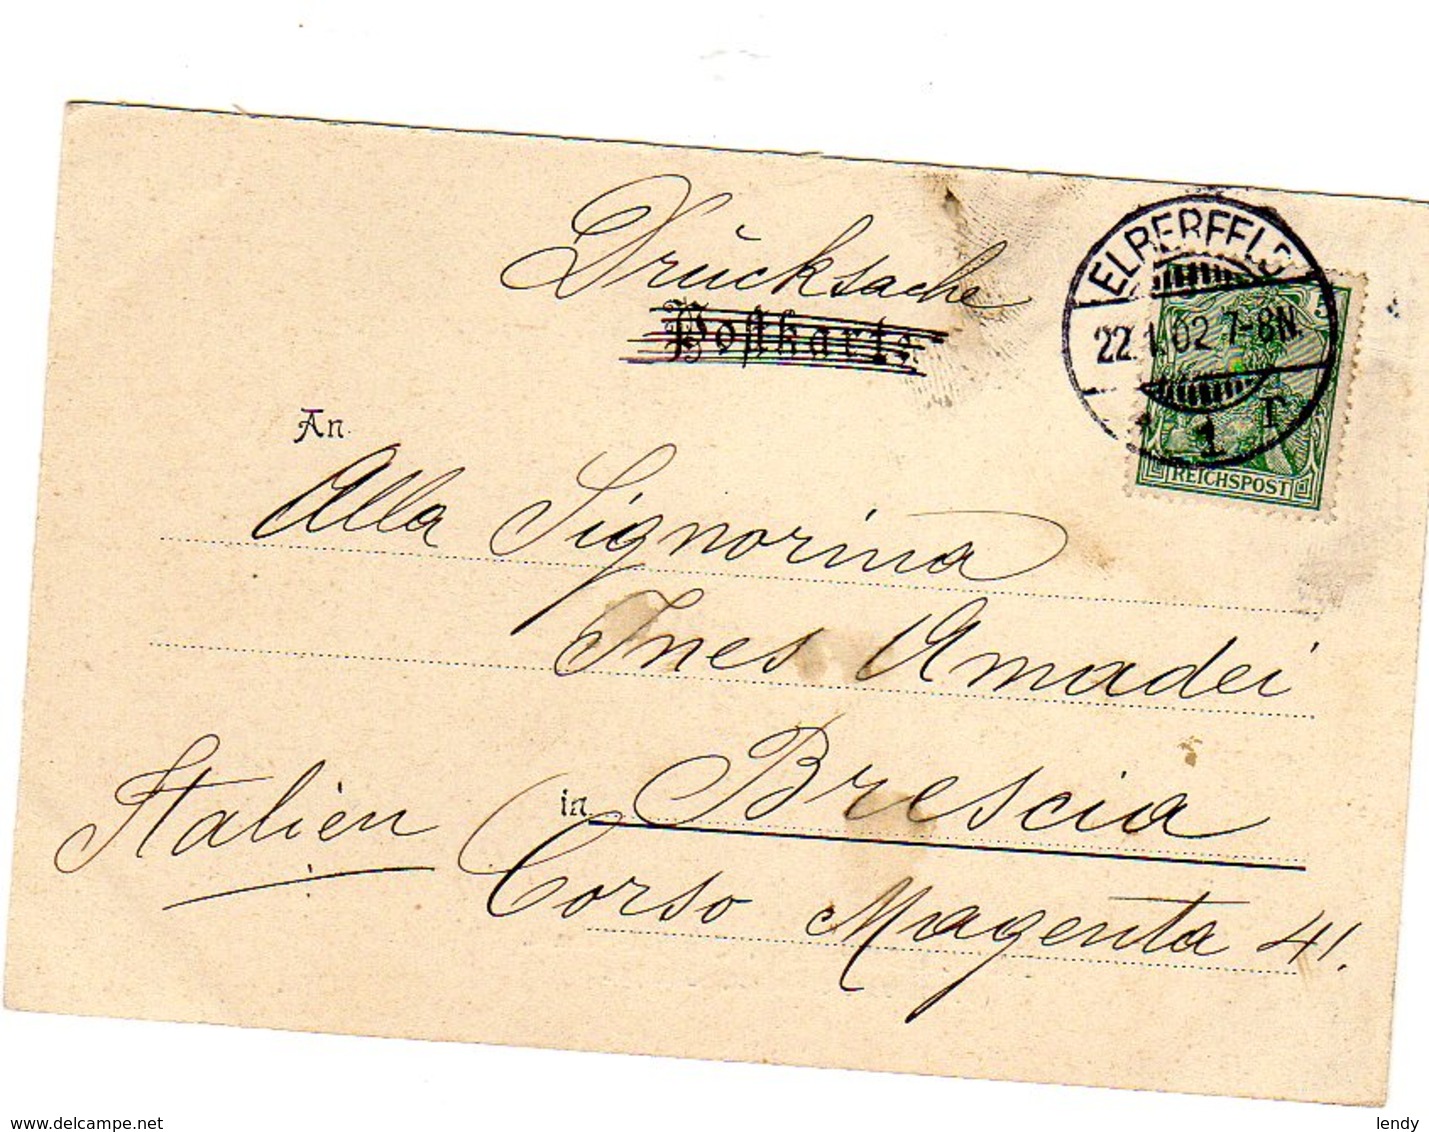 Drucksache
Postkarte
ELBERFELD
22.1.02 7-8N.
* 1 r
5
REICHSPOST
An
Alla Signorina
Ines Amadei
in Brescia
Italien
Corso Magenta 41.
www.delcampe.net
lendy